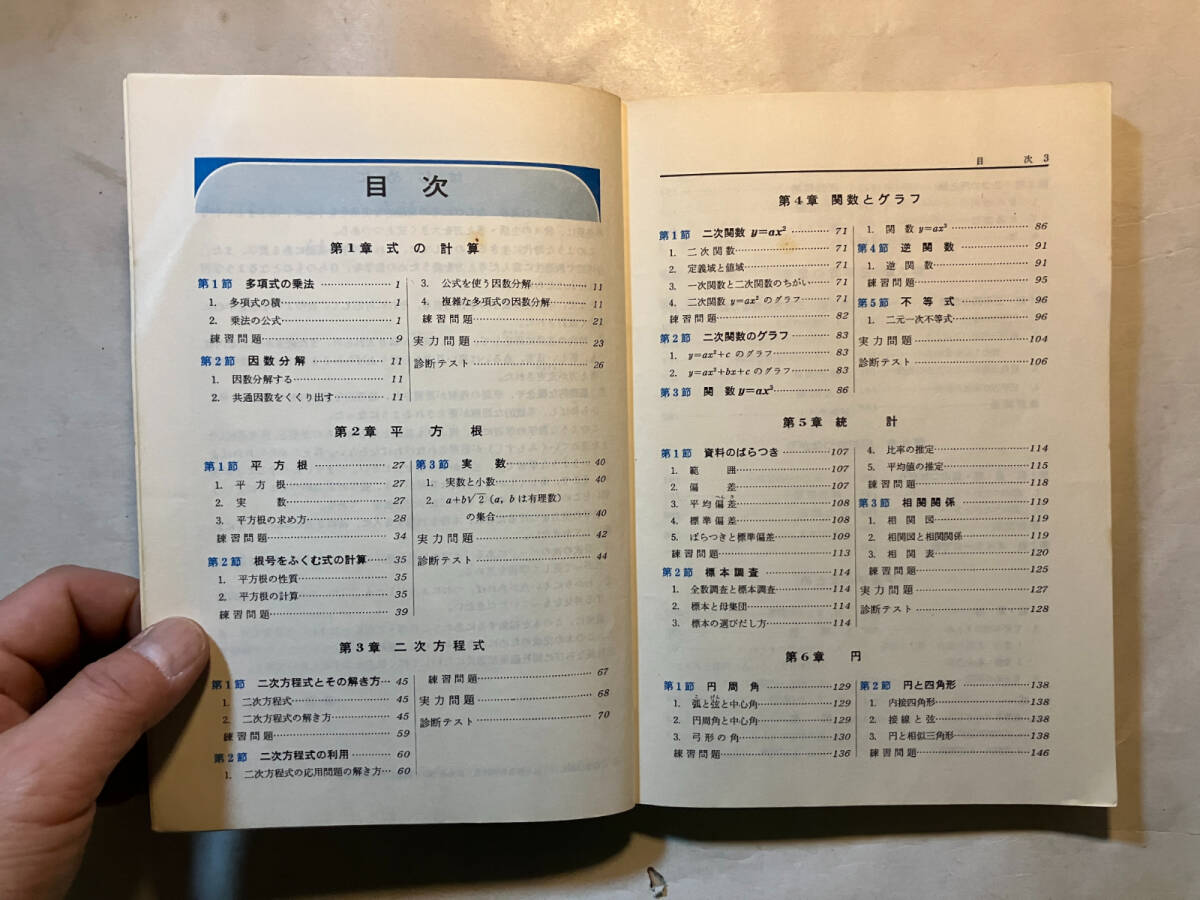 目次
第1章 式の計算
第1節 多項式の乗法……………1
1. 多項式の積……………1
2. 乗法の公式……………1
練習問題……………9
第2節 因数分解……………11
1. 因数分解する……………11
2. 共通因数をくくり出す……………11
3. 公式を使う因数分解……………11
4. 複雑な多項式の因数分解……………11
練習問題……………21
実力問題……………23
診断テスト……………26
第2章 平方根
第1節 平方根……………27
1. 平方根……………27
2. 実数……………27
3. 平方根の求め方……………28
練習問題……………34
第2節 根号をふくむ式の計算……………35
1. 平方根の性質……………35
2. 平方根の計算……………35
練習問題……………39
第3節 実数……………40
1. 実数と小数……………40
2. a+b√2 (a, b は有理数)
の集合……………40
実力問題……………42
診断テスト……………44
第3章 二次方程式
第1節 二次方程式とその解き方……………45
1. 二次方程式……………45
2. 二次方程式の解き方……………45
練習問題……………59
第2節 二次方程式の利用……………60
1. 二次方程式の応用問題の解き方……………60
練習問題……………67
実力問題……………68
診断テスト……………70
目次 3
第4章 関数とグラフ
第1節 二次関数 y=ax²……………71
1. 二次関数……………71
2. 定義域と値域……………71
3. 一次関数と二次関数のちがい……………71
4. 二次関数 y=ax² のグラフ……………71
練習問題……………82
第2節 二次関数のグラフ……………83
1. y=ax²+c のグラフ……………83
2. y=ax²+bx+c のグラフ……………83
第3節 関数 y=ax³……………86
1. 関数 y=ax³……………86
第4節 逆関数……………91
1. 逆関数……………91
練習問題……………95
第5節 不等式……………96
1. 二元一次不等式……………96
実力問題……………104
診断テスト……………106
第5章 統計
第1節 資料のばらつき……………107
1. 範囲……………107
2. 偏差……………107
3. 平均偏差……………108
4. 標準偏差……………108
5. ばらつきと標準偏差……………109
練習問題……………113
第2節 標本調査……………114
1. 全数調査と標本調査……………114
2. 標本と母集団……………114
3. 標本の選びだし方……………114
4. 比率の推定……………114
5. 平均値の推定……………115
練習問題……………118
第3節 相関関係……………119
1. 相関図……………119
2. 相関図と相関関係……………119
3. 相関表……………120
練習問題……………125
実力問題……………127
診断テスト……………128
第6章 円
第1節 円周角……………129
1. 弧と弦と中心角……………129
2. 円周角と中心角……………129
3. 弓形の角……………130
練習問題……………136
第2節 円と四角形……………138
1. 内接四角形……………138
2. 接線と弦……………138
3. 円と相似三角形……………138
練習問題……………146